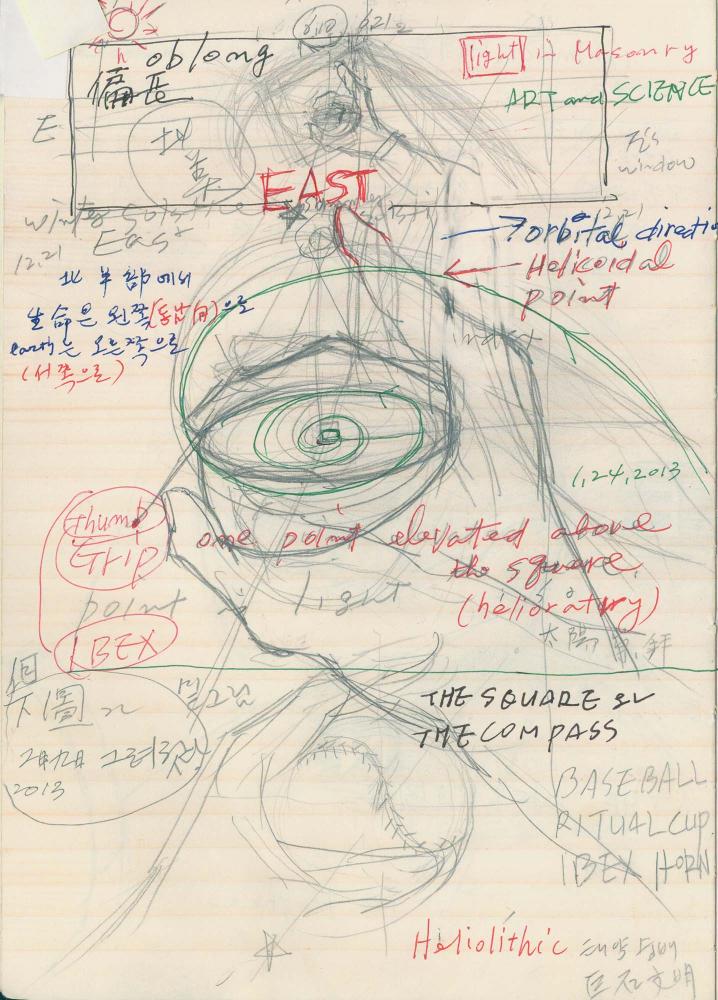 6,10 6,21
h oblong
偏長
light in Masonry
ART and SCIENCE
E
北
7's
window
EAST
winter solstice
East
12,21
12,21
orbital directi
Helicoidal
point
北半部에서
生命은 왼쪽(동남向)으로
earth는 오른쪽으로
(서쪽으로)
1,24,2013
thumb
Grip
one point elevated above
the square
(helioratry)
point of light
太陽
IBEX
下圖
밑그림
2013
THE SQUARE &
THE COMPASS
BASEBALL
RITUAL CUP
IBEX HORN
Heliolithic
태양
巨石文明